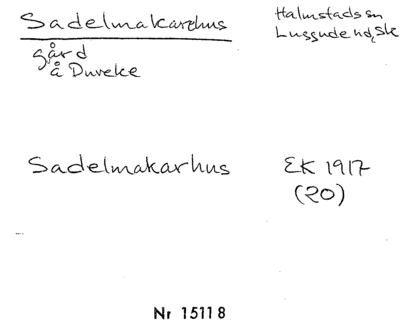 Sadelmakarehus
Halmstads sn
Luggude hd, Sk
gård
å Duveke
Sadelmakarhus
EK 1917
(20)
Nr 15118